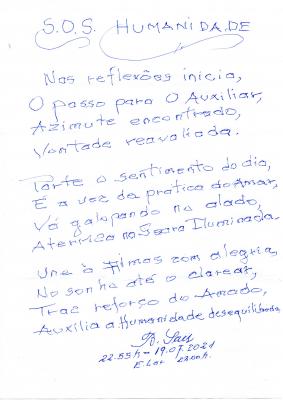 S.O.S. HUMANIDADE
Nas reflexões inicia,
O passo para O Auxiliar,
Azimute encontrado,
Vontade reavaliada.
Parte o sentimento do dia,
É a vez da pratica do Amar,
Vá galopando no alado,
Aterriza na Seara Iluminada.
Una à Almas com alegria,
No sonho até o clarear,
Traz reforço do Amado,
Auxilia a Humanidade desequilibrada
22.55h - 19.07.2021